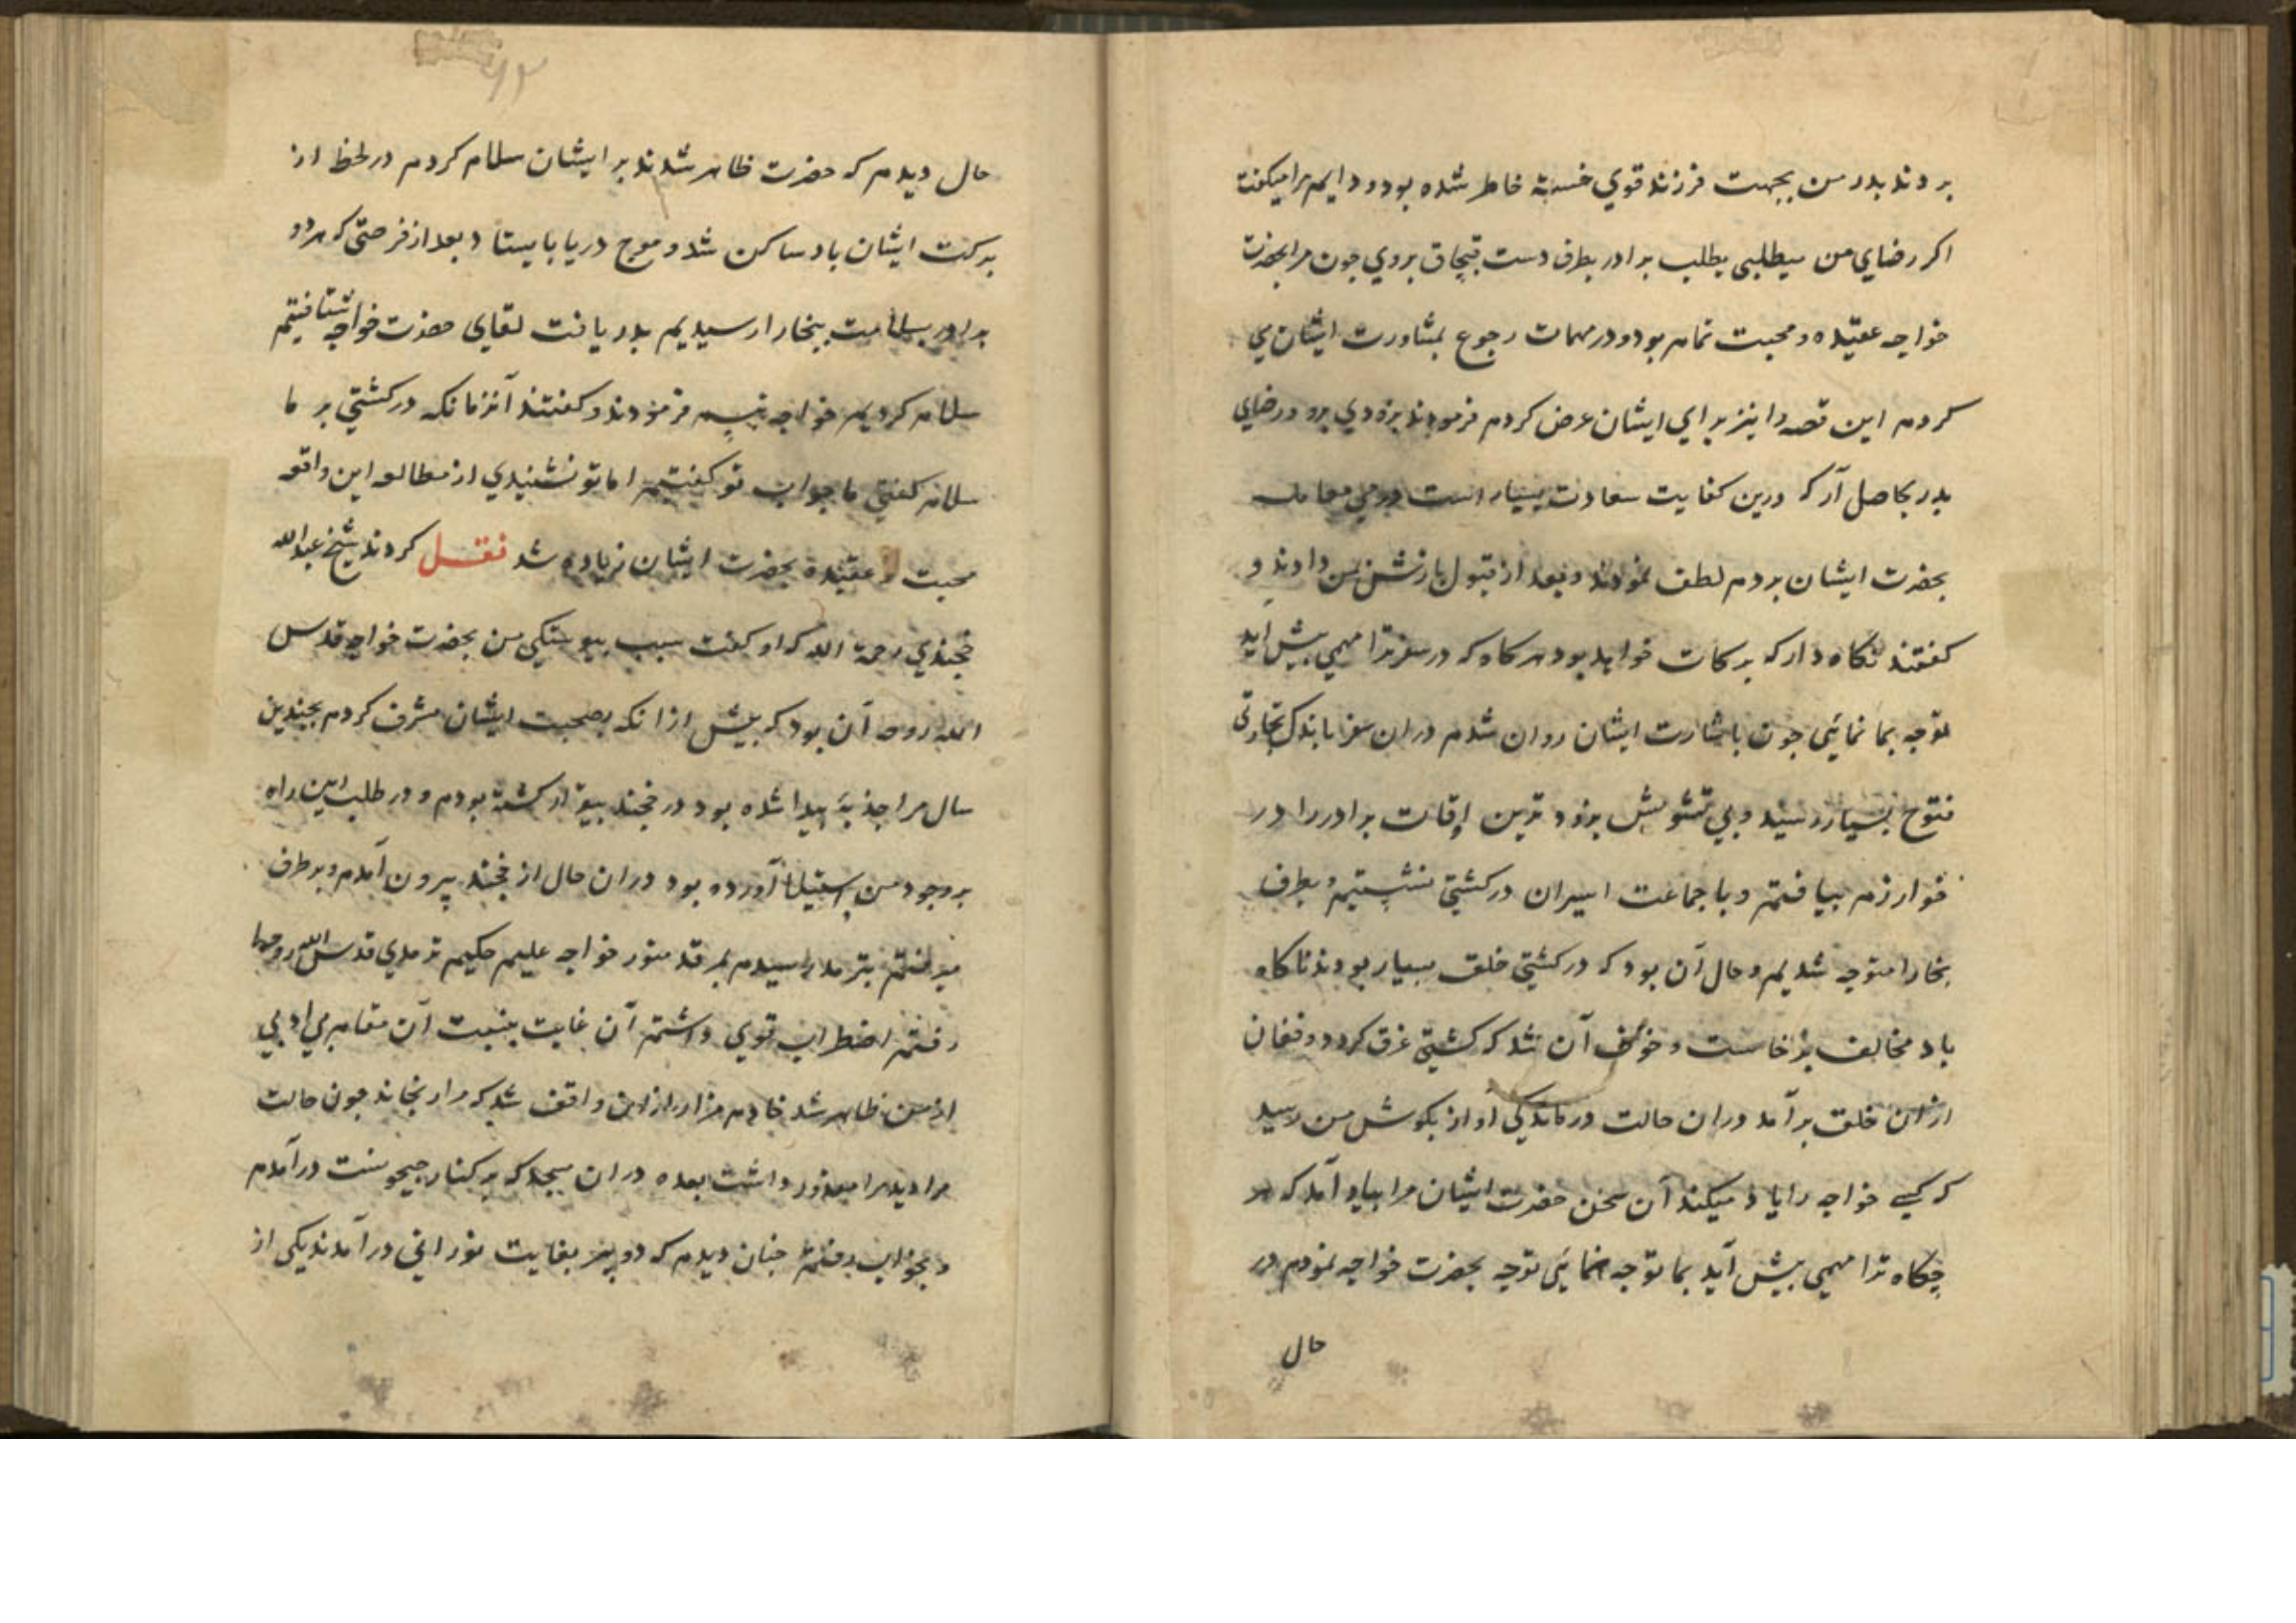 بردند پدر من بجهت فرزند قوي خسته خاطر شده بود و دايم مرا ميكفت
اكر رضاي من ميطلبي بطلب برادر بطرف دشت قبچاق بروي چون مرا بحضرت
خواجه عقيده و محبت تمام بود و در مهمات رجوع بمشاورت ايشان مي
كردم اين قصه را نيز براي ايشان عرض كردم فرمودند بزودي برو و رضاي
پدر بحاصل آر كه درين كفايت سعادت بسيار است درمي معامله
بحضرت ايشان بردم لطف نمودند و بعد از قبول بازش بمن دادند و
كفتند نكاه دار كه بركات خواهد بود هركاه كه در سفر ترا مهمي پيش آيد
توجه بما نمائي چون باشارت ايشان روان شدم دران سفر باندك تجارتي
فتوح بسيار رسيد و بي تشويش بزودترين اوقات برادر را در
خوارزم بيافتم و با جماعت اسيران در كشتي نشستيم و بطرف
بخارا متوجه شديم و حال آن بود كه در كشتي خلق بسيار بودند ناكاه
باد مخالف برخاست و خوف آن شد كه كشتي غرق كردد و فغان
ازان خلق برآمد دران حالت درماندكي آواز بكوش من رسيد
كه كسي خواجه را ياد ميكند آن سخن حضرت ايشان مرا بياد آمد كه هر
چكاه ترا مهمي پيش آيد بما توجه نمائي توجه بحضرت خواجه نمودم در
حال
۹۲
حال ديدم كه حضرت ظاهر شدند بر ايشان سلام كردم در لحظ از
بركت ايشان باد ساكن شد و موج دريا بايستاد بعد از فرصتي كه هر دو
برادر بسلامت ببخارا رسيديم بدريافت لقاي حضرت خواجه شتافتيم
سلام كرديم خواجه تبسم فرمودند و كفتند آنزمانكه در كشتي بر ما
سلام كفتي ما جواب تو كفتيم اما تو نشنيدي از مطالعه اين واقعه
محبت و عقيده بحضرت ايشان زياده شد نقل كردند شيخ عبدالله
خجندي رحمة الله كه او كفت سبب پيوستكي من بحضرت خواجه قدس
الله روحه آن بود كه پيش ازانكه بصحبت ايشان مشرف كردم بچندين
سال مرا جذبه پيدا شده بود در خجند بيقرار كشته بودم و درد طلب اين راه
بر وجود من استيلا آورده بود دران حال از خجند بيرون آمدم و بر طرف
ميرفتم بترمد رسيدم بمرقد منور خواجه عليم حكيم ترمدي قدس الله روحه
رفتم اضطراب قوي داشتم آن غايت بنسبت آن مقام بي ادبي
از من ظاهر شد خادم مزار ازان واقف شد كه مرا برنجاند چون حالت
مرا ديد مرا معذور داشت بعده دران مسجد كه بر كنار جيحونست درآمدم
و بخواب رفتم چنان ديدم كه دو پير بغايت نوراني درآمدند يكي از